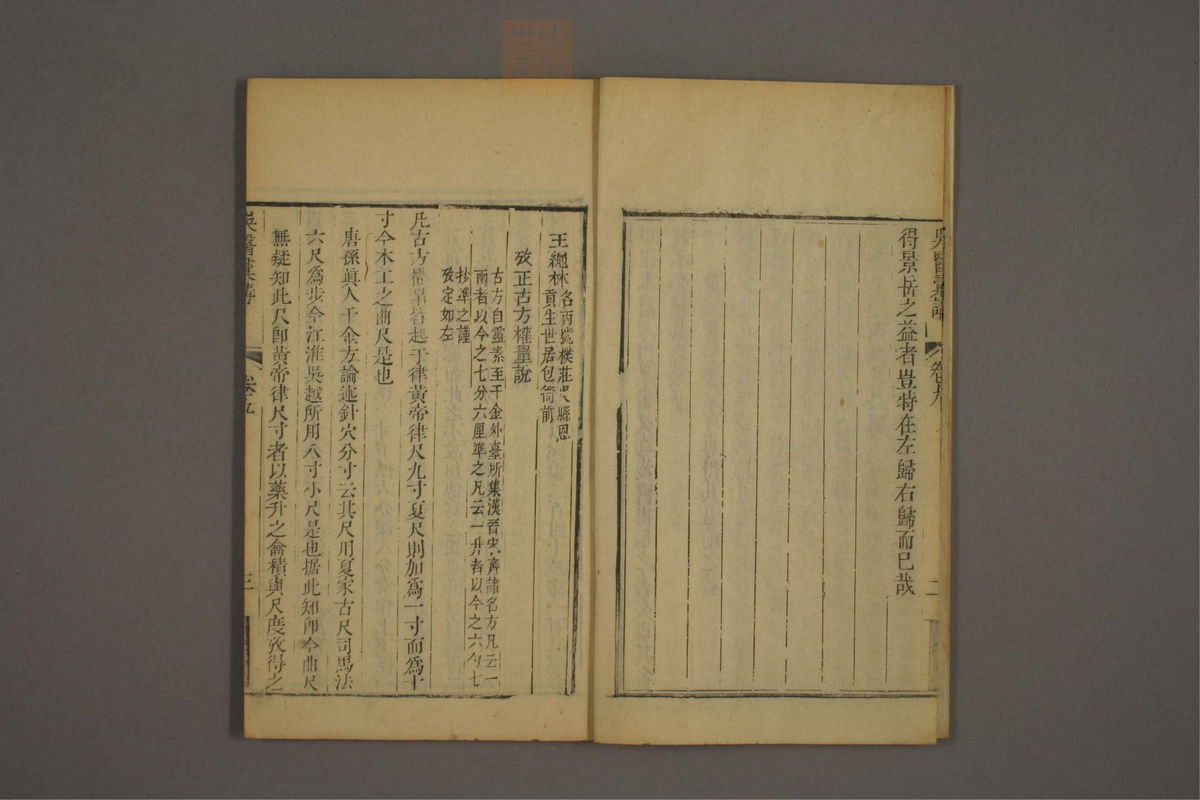 吳醫彙講 卷九 二
得景岳之益者豈特在左歸右歸而已哉
王繩林名丙號樸莊吳縣恩
貢生世居包衙前
攷正古方權量說
古方自靈素至千金外臺所集漢晉宋齊諸名方凡云一
兩者以今之七分六厘準之凡云一升者以今之六勺七
抄準之謹
攷定如左
凡古方權量皆起于律黃帝律尺九寸夏尺則加為一寸而為十
寸今木工之曲尺是也
唐孫真人千金方論述針穴分寸云其尺用夏家古尺司馬法
六尺為步今江淮吳越所用八寸小尺是也據此知卽今曲尺
無疑知此尺卽黃帝律尺寸者以藥升之龠積與尺度攷得之
吳醫彙講 卷九 三